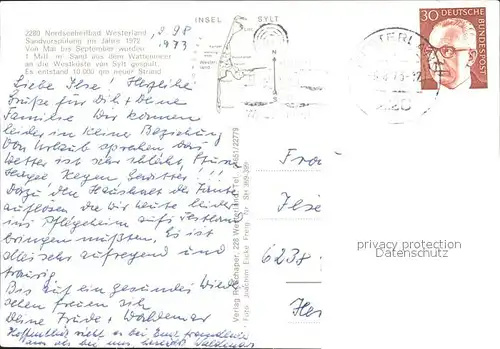 2280 Nordseeheilbad Westerland
Sandvorspülung im Jahre 1972
Von Mai bis September wurden
1 Mill. m³ Sand aus dem Wattenmeer
an die Westküste von Sylt gespült.
Es entstand 10 000 qm neuer Strand
1973
INSEL SYLT
N
S
30
DEUTSCHE
BUNDESPOST
Liebe Ilse! Herzliche
Grüße für Dich, Deine
Familie. Wir können
leider in keiner Beziehung
von Urlaub sprechen. Das
Wetter ist sehr schlecht, Sturm
Hagel Regen Gewitter!!!
Dazu den Haushalt der Tante
auflösen die wir heute leider
ins Pflegeheim aufs Festland
bringen mußten. Es ist
alles sehr aufregend und
traurig.
Bis auf ein gesundes Wieder
sehen freuen sich
Deine Trude, Waldemar
Hoffentlich sieht es bei Euch
aus als bei uns. Waldemar
Verlag 228 Westerland, Tel. 04651/22779
Foto: Joachim Eicke Freig. für Str. 369-399
Frau
Ilse
6238
privacy protection
Datenschutz